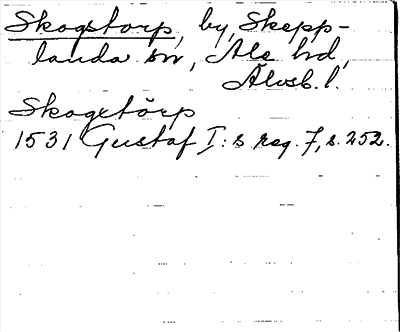 Skogstorp, by, Skepp-
landa sn, Ale hd,
Älvsb. l.
Skogstörp
1531 Gustaf I:s reg. 7, s. 252.